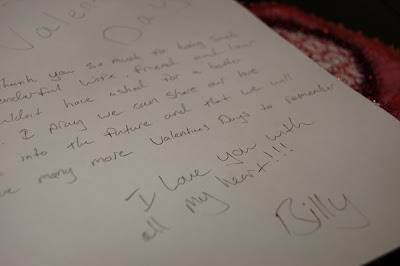 Valen
Day
Thank you so much for being such
wonderful wife, friend and lover
couldn't have asked for a better
. I pray we can share our love
into the future and that we will
many more Valentines Days to remember
I love you with
all my heart!!!
Billy